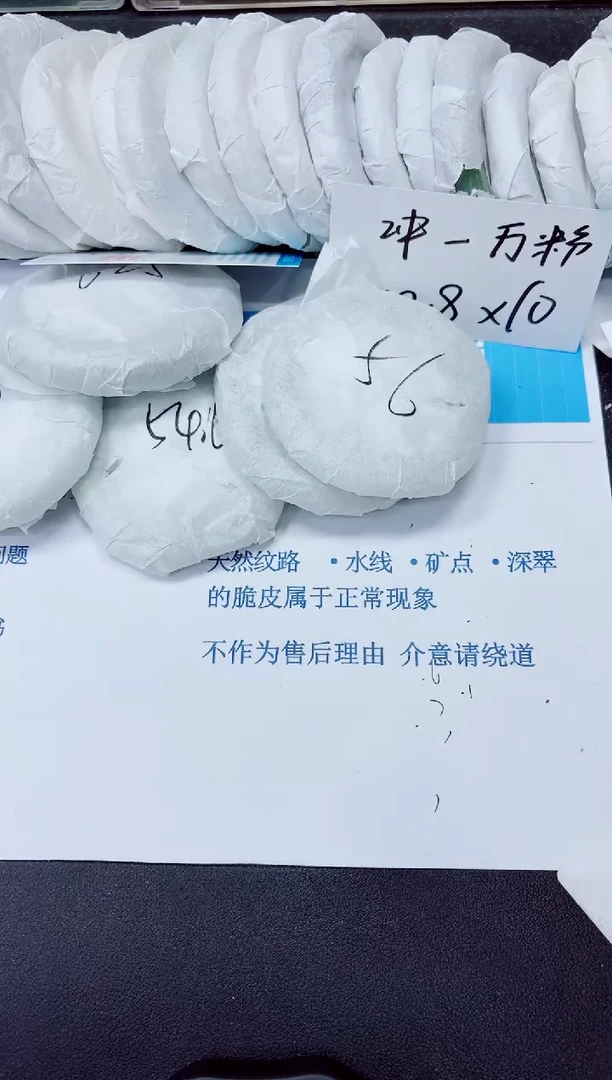 冲一万粉
.8×10
56
54.
问题
天然纹路 •水线 •矿点 •深翠
的脆皮属于正常现象
不作为售后理由 介意请绕道